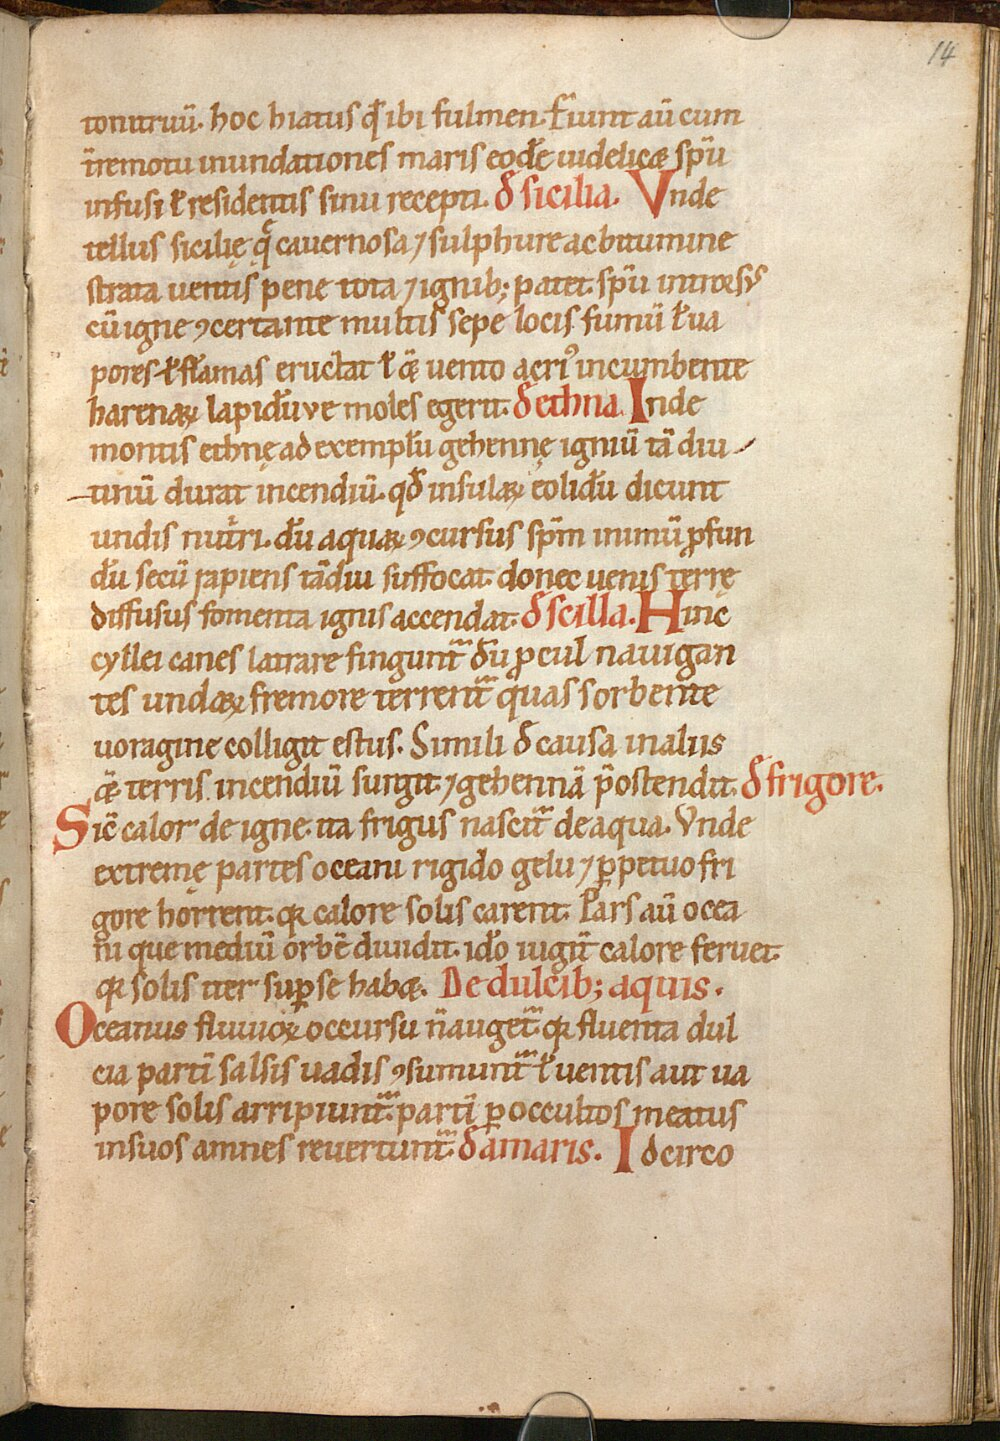 14
tonitruū. hoc hiatus qđ ibi fulmen. Fiunt aū cum
t̄remotu inundationes maris eodē uidelicæ spū
infusi ł residentis sinu recepti. đ sicilia. Vnde
tellus sicilię q̄ cauernosa ⁊ sulphure ac bitumine
strata uentis pene tota ⁊ ignib; patet spū introrsꝰ
cū igne ꝯcertante multis sepe locis fumū ł ua
pores ł flāmas eructat ł q̄ uento acriꝰ incumbente
harenaꝝ lapidūve moles egerit. đ ethna. Inde
montis ethnę ad exemplū gehennę igniū tā diu
tinū durat incendiū. qđ insulaꝝ eolidū dicunt
undis nutri. dū aquaꝝ ꝯcursus spm̄ in imū ꝓfun
dū secū rapiens tādiu suffocat donec uenis terrę
diffusus fomenta ignis accendat. đ scilla. Hinc
cyllei canes latrare fingunt᷑ dū ꝓcul nauigan
tes undaꝝ fremore terrent᷑ quas sorbente
uoragine colligit estus. Simili đ causa in aliis
q̄ terris incendiū surgit ⁊ gehennā p̄ostendit. đ frigore.
Sic̄ calor de igne. ita frigus nascit᷑ de aqua. Vnde
extremę partes oceani rigido gelu ⁊ ꝑpetuo fri
gore horrent. qꝛ calore solis carent. Pars aū ocea
ni que mediū orbē diuidit. idō iugit̄ calore feruet
qꝛ solis iter suꝑ se habæ. De dulcib; aquis.
Oceanus fluuioꝝ occursu n̄ auget᷑. qꝛ fluenta dul
cia partī salsis uadis ꝯsumunt᷑ ł uentis aut ua
pore solis arripiunt᷑. partī ꝑ occultos meatus
in suos amnes reuertunt᷑. đ amaris. Idcirco